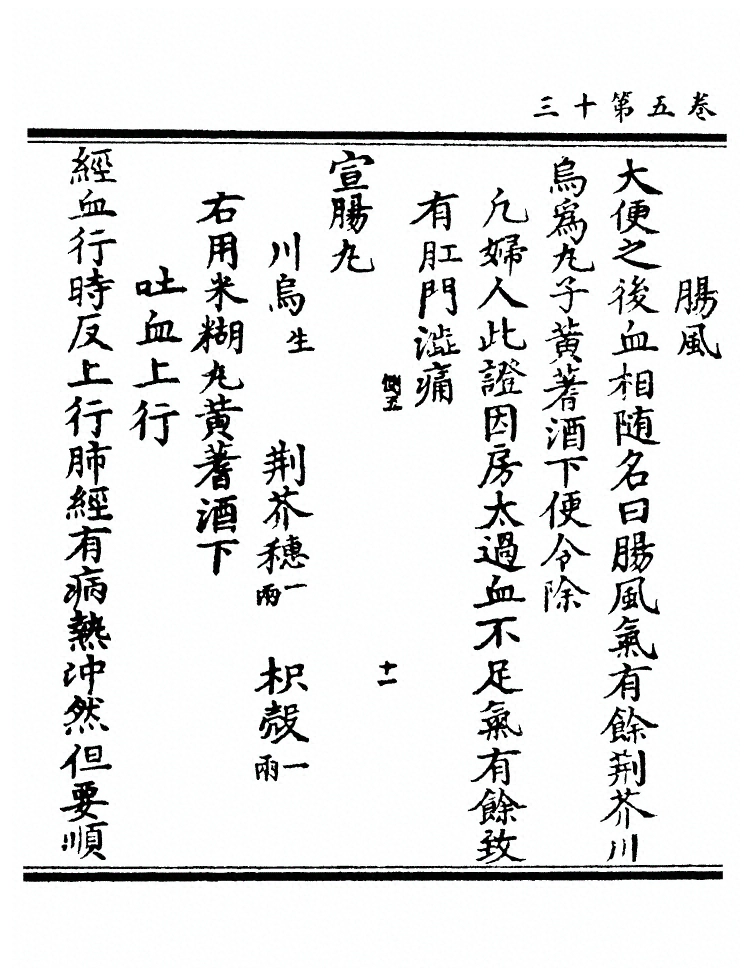 卷五第十三
腸風
大便之後血相随名曰腸風氣有餘荆芥川
烏爲丸子黄蓍酒下便令除
凢婦人此證因房太過血不足氣有餘致
有肛門澁痛
側五
十一
宣腸丸
川烏生 荆芥穗一兩 枳殼一兩
右用米糊丸黄蓍酒下
吐血上行
經血行時反上行肺經有病熱冲然但要順